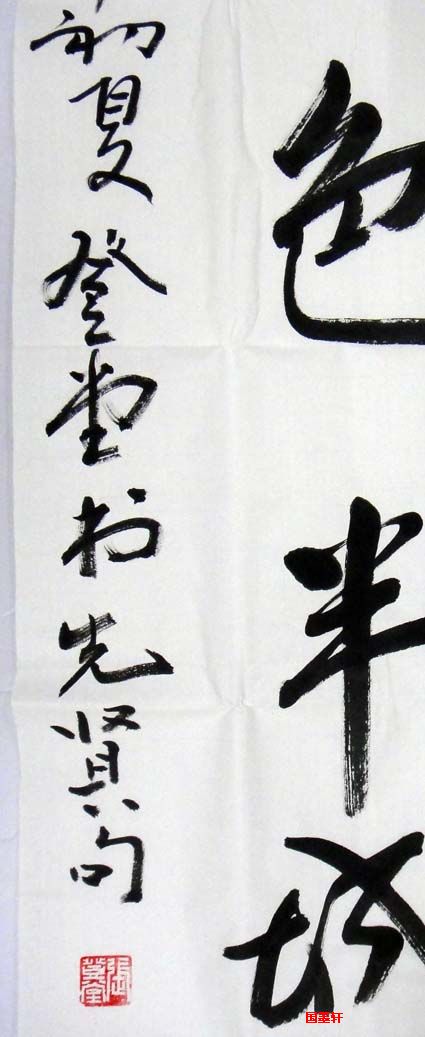 色半城
初夏登堂书先贤句
张登堂
国墨轩